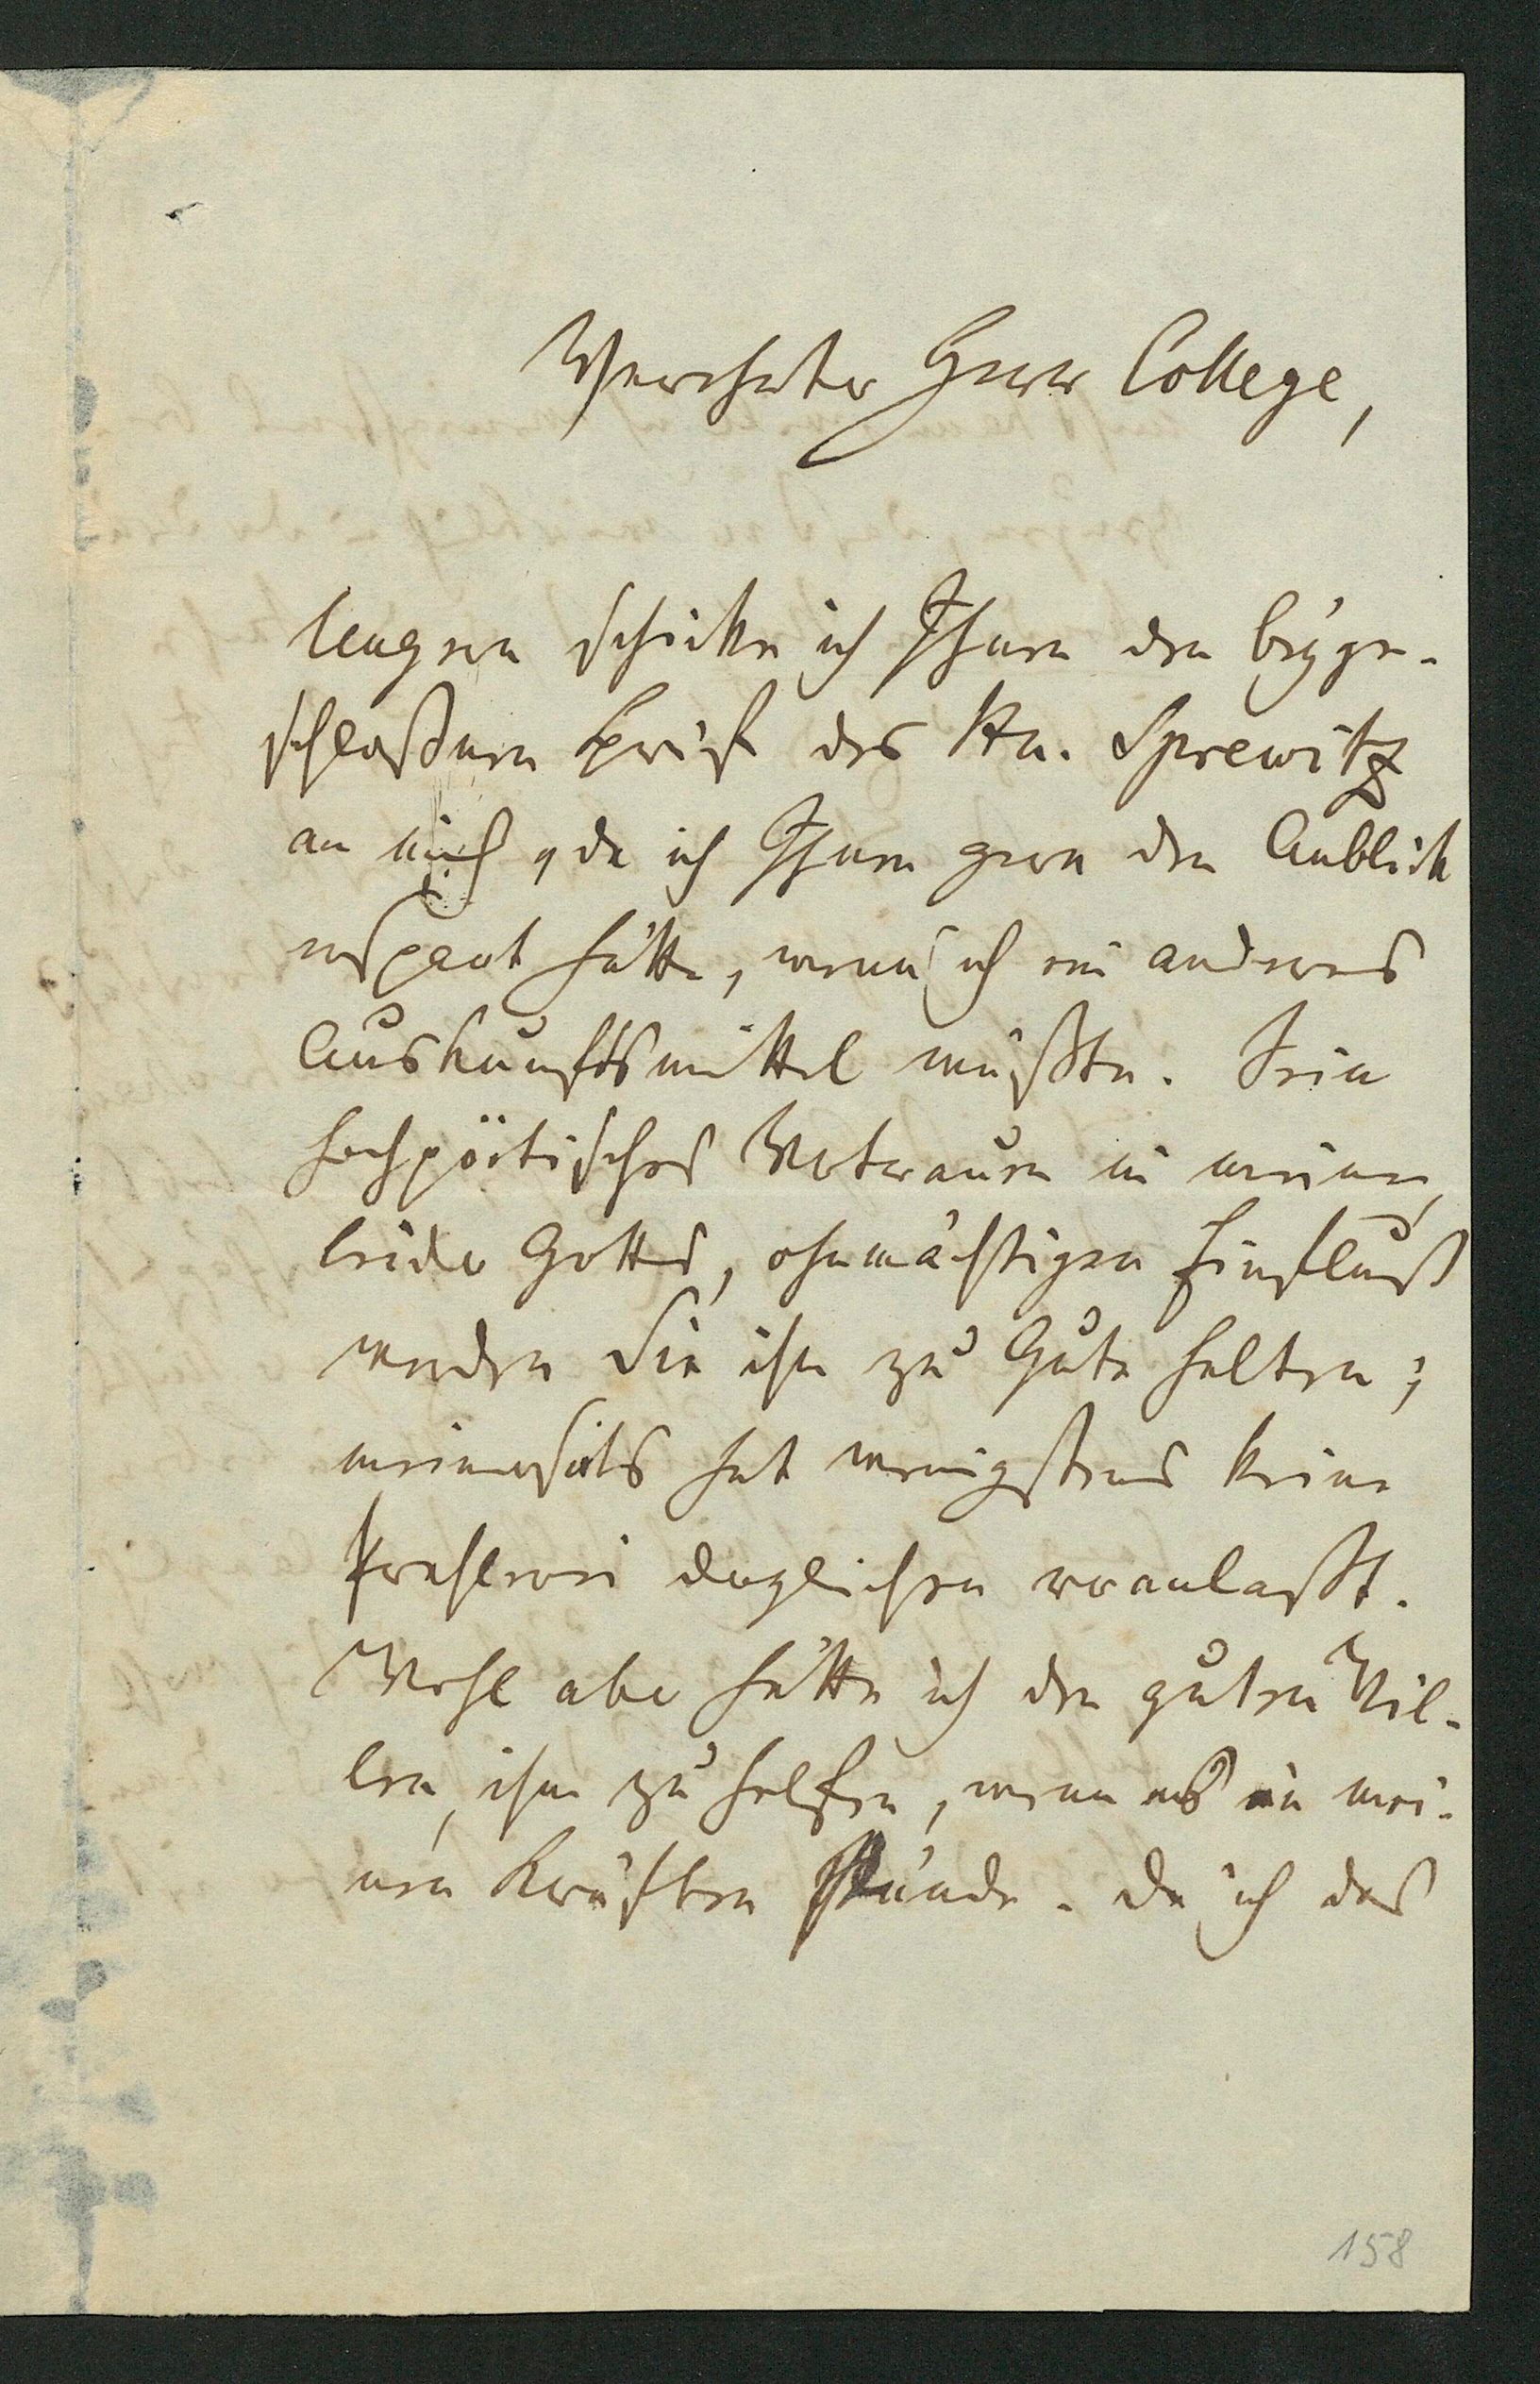 Verehrter Herr College,
Ungern schicke ich Ihnen den beyge-
schloßenen Brief des Hn. Sprewitz
an mich, da ich Ihnen gern den Anblick
erspart hätte, wenn ich ein anderes
Auskunftsmittel wüßte. Sein
hochpoëtisches Vertrauen in meinen,
leider Gottes, ohnmächtigen Einfluß
werden Sie ihm zu Gute halten;
meinerseits hat wenigstens keine
Prahlerei dergleichen veranlaßt.
Wohl aber hätte ich den guten Wil-
len, ihm zu helfen, wenn es in mei-
nen Kräften stünde. Da ich das
158